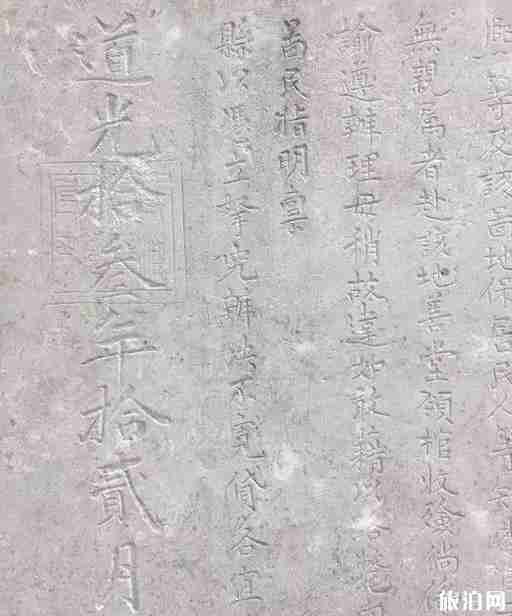 等及該啚地保居民人等
無親屬者赴該地善堂領棺收殮倘
諭遵辦理毋稍故違如敢藉以
啚民指明稟
縣以憑立拏究辦決不寬貸各宜
道光拾叁年拾貳月
旅泊网